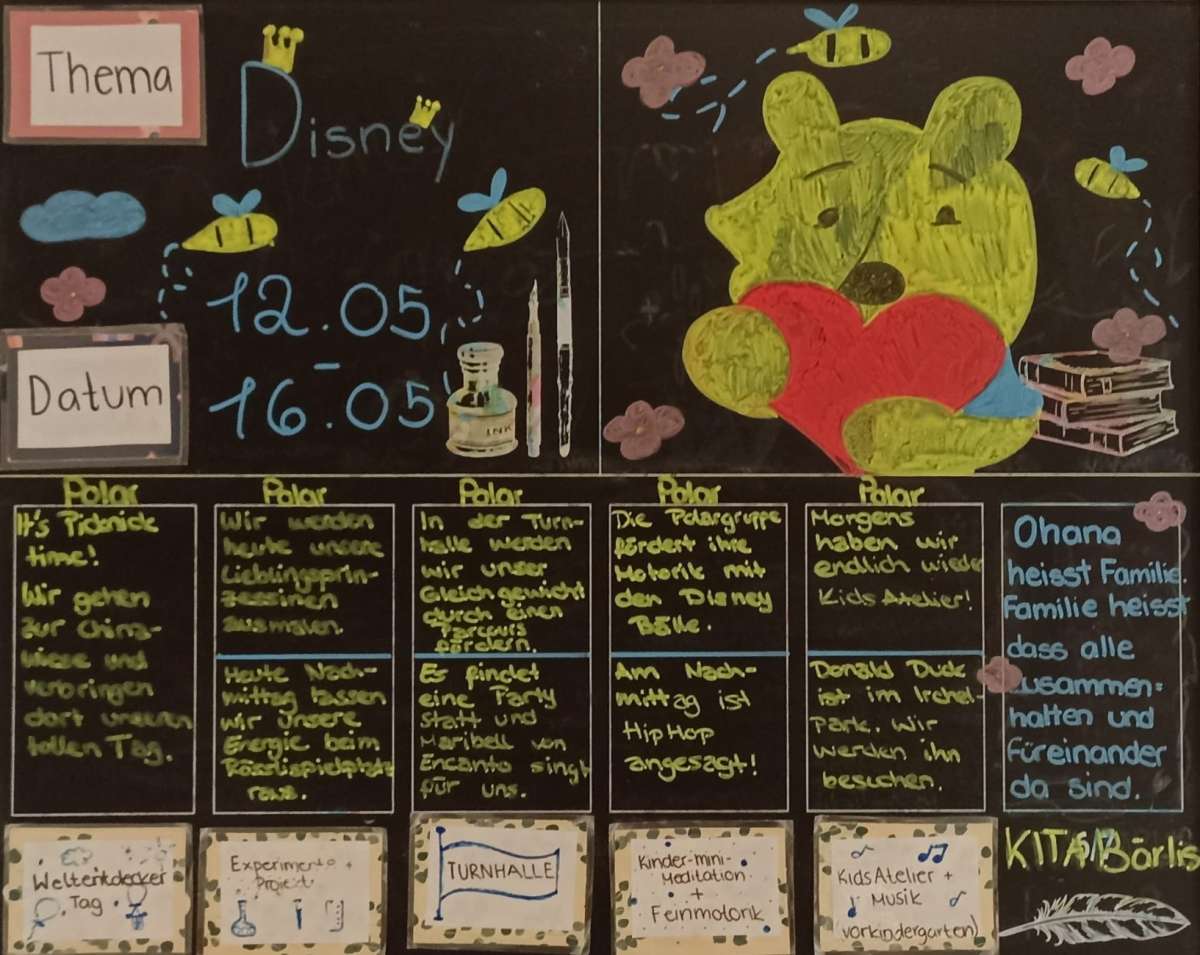 Thema
Disney
12.05
-
16.05
Datum
INK
Polar
It's Picknick
time!
Wir gehen
zur China-
wiese und
verbringen
dort unseren
tollen Tag.
Polar
Wir werden
heute unsere
Lieblingsprin-
zessinen
ausmalen.
Heute Nach-
mittag lassen
wir unsere
Energie beim
Rösslispielplatz
raus.
Polar
In der Turn-
halle werden
wir unser
Gleichgewicht
durch einen
Parcours
fördern.
Es findet
eine Party
statt und
Maribell von
Encanto singt
für uns.
Polar
Die Polargruppe
fördert ihre
Motorik mit
den Disney
Bälle.
Am Nach-
mittag ist
HipHop
angesagt!
Polar
Morgens
haben wir
endlich wieder
Kids Atelier!
Donald Duck
ist im Irchel-
park. Wir
werden ihn
besuchen.
Ohana
heisst Familie.
Familie heisst
dass alle
zusammen-
halten und
füreinander
da sind.
Weltentdecker
Tag
Experimente +
Projekt
TURNHALLE
Kinder-mini-
Meditation
+
Feinmotorik
Kids Atelier +
Musik
vorkindergarten)